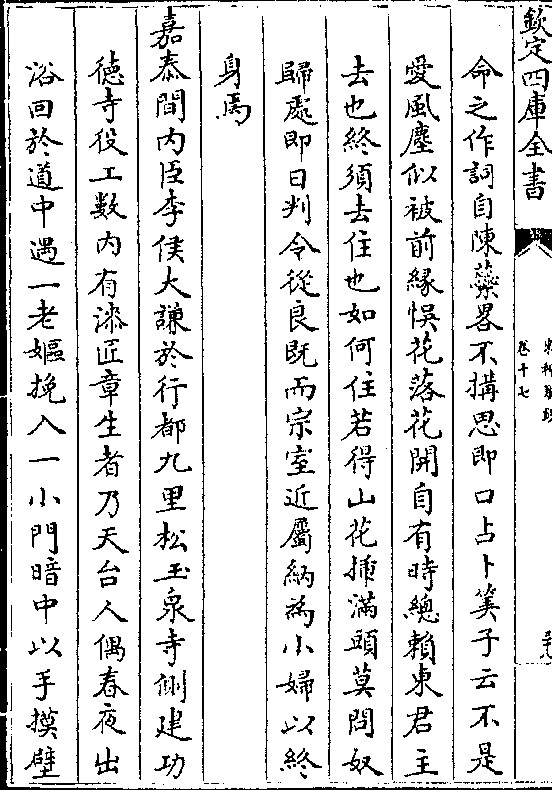 欽定四庫全書
卷十七
命之作詞自陳蘂畧不搆思即口占卜筭子云不是
愛風塵似被前緣悮花落花開自有時總賴東君主
去也終須去住也如何住若得山花揷滿頭莫問奴
歸處即日判令從良既而宗室近屬納為小婦以終
身焉
嘉泰間內臣李侯大謙於行都九里松玉泉寺側建功
徳寺役工數內有漆匠章生者乃天台人偶春夜出
浴回於道中遇一老嫗挽入一小門暗中以手摸壁